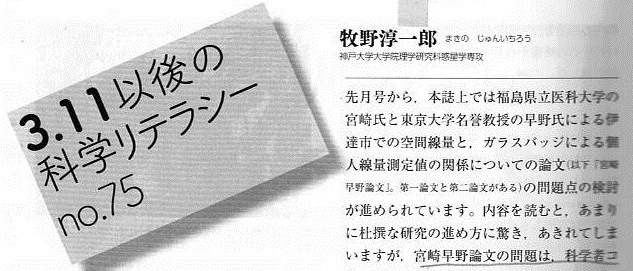 3.11以後の
科学リテラシー
no.75
牧野淳一郎 まきの じゅんいちろう
神戸大学大学院理学研究科惑星学専攻
先月号から，本誌上では福島県立医科大学の
宮崎氏と東京大学名誉教授の早野氏による伊
達市での空間線量と，ガラスバッジによる個
人線量測定値の関係についての論文(以下『宮崎
早野論文』。第一論文と第二論文がある)の問題点の検討
が進められています。内容を読むと，あまり
に杜撰な研究の進め方に驚き，あきれてしま
いますが，宮崎早野論文の問題は，科学者コ